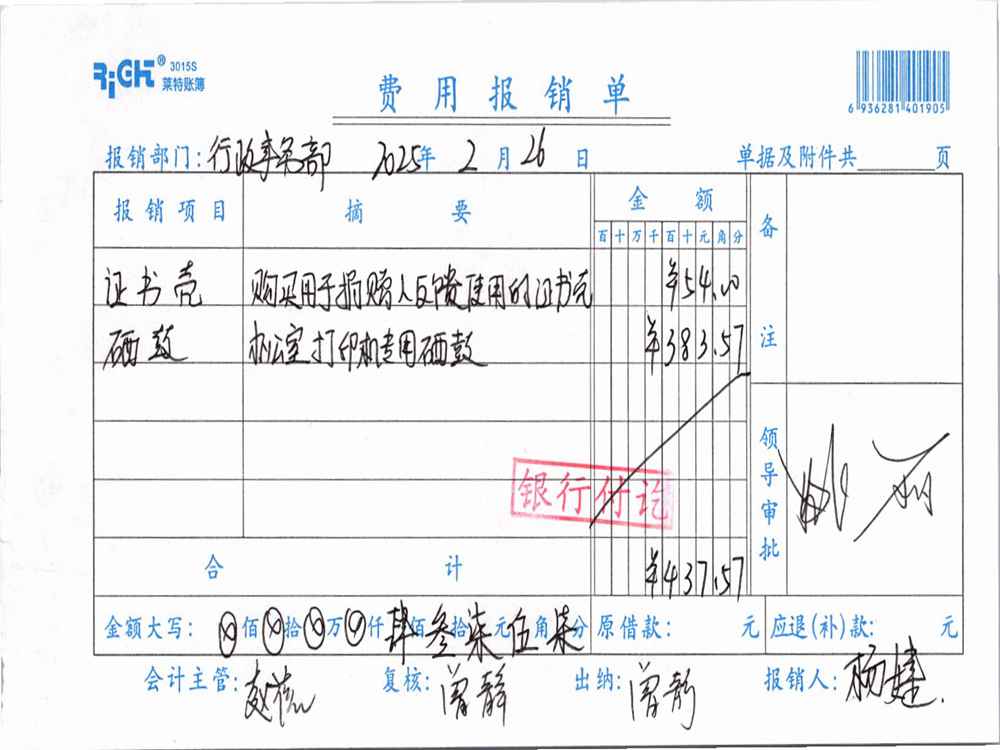 RiGHT® 3015S
莱特账簿
费用报销单
6 936281 401905
报销部门：行政事务部 2025年 2月 26日 单据及附件共 页
报销项目 摘要 金额 备注
百十万千百十元角分
证书壳 购买用于捐赠人反馈使用的证书壳 ¥54.00
硒鼓 办公室打印机专用硒鼓 ¥383.57
银行付讫
领导审批
合计 ¥437.57
金额大写：ⓧ佰ⓧ拾ⓧ万ⓧ仟肆佰叁拾柒元伍角柒分 原借款： 元 应退(补)款： 元
会计主管： 复核：曾静 出纳：曾静 报销人：杨婕.